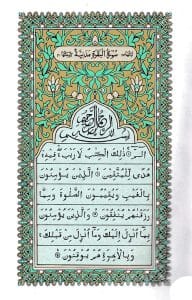 سورة البقرة مدنية
بسم الله الرحمن الرحيم
الٓمٓ ۝ ذَٰلِكَ الْكِتَٰبُ لَا رَيْبَ فِيهِ
هُدًى لِّلْمُتَّقِينَ ۝ الَّذِينَ يُؤْمِنُونَ
بِالْغَيْبِ وَيُقِيمُونَ الصَّلَوٰةَ وَمِمَّا
رَزَقْنَٰهُمْ يُنفِقُونَ ۝ وَالَّذِينَ يُؤْمِنُونَ
بِمَا أُنزِلَ إِلَيْكَ وَمَا أُنزِلَ مِن قَبْلِكَ
وَبِالْآخِرَةِ هُمْ يُوقِنُونَ ۝